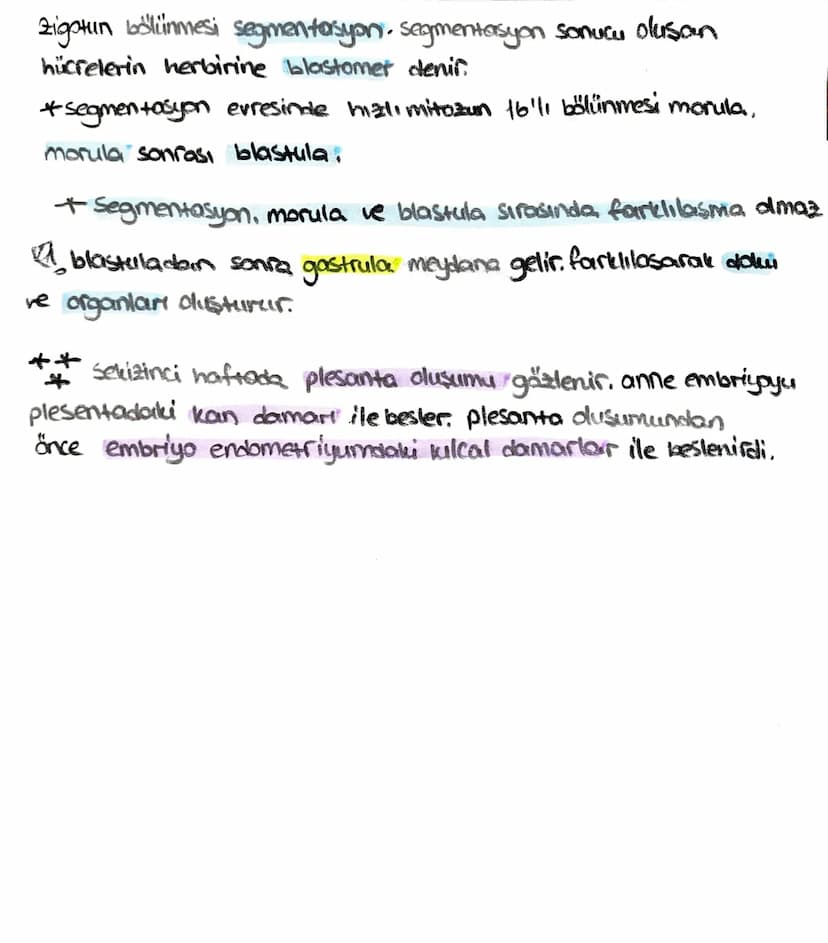 zigotun bölünmesi segmentasyon. segmentasyon sonucu oluşan
hücrelerin herbirine blastomer denir.
*segmentasyon evresinde hızlı mitozun 16'lı bölünmesi morula,
morula sonrası blastula;
+ segmentasyon, morula ve blastula sırasında farklılaşma olmaz
blastuladan sonra gastrula meydana gelir. farklılaşarak doku
ve organları oluşturur.
*** sekizinci haftada plesanta oluşumu gözlenir. anne embriyoyu
plesentadaki kan damarı ile besler. plesanta oluşumundan
önce embriyo endometriyumdaki kılcal damarlar ile beslenirdi.